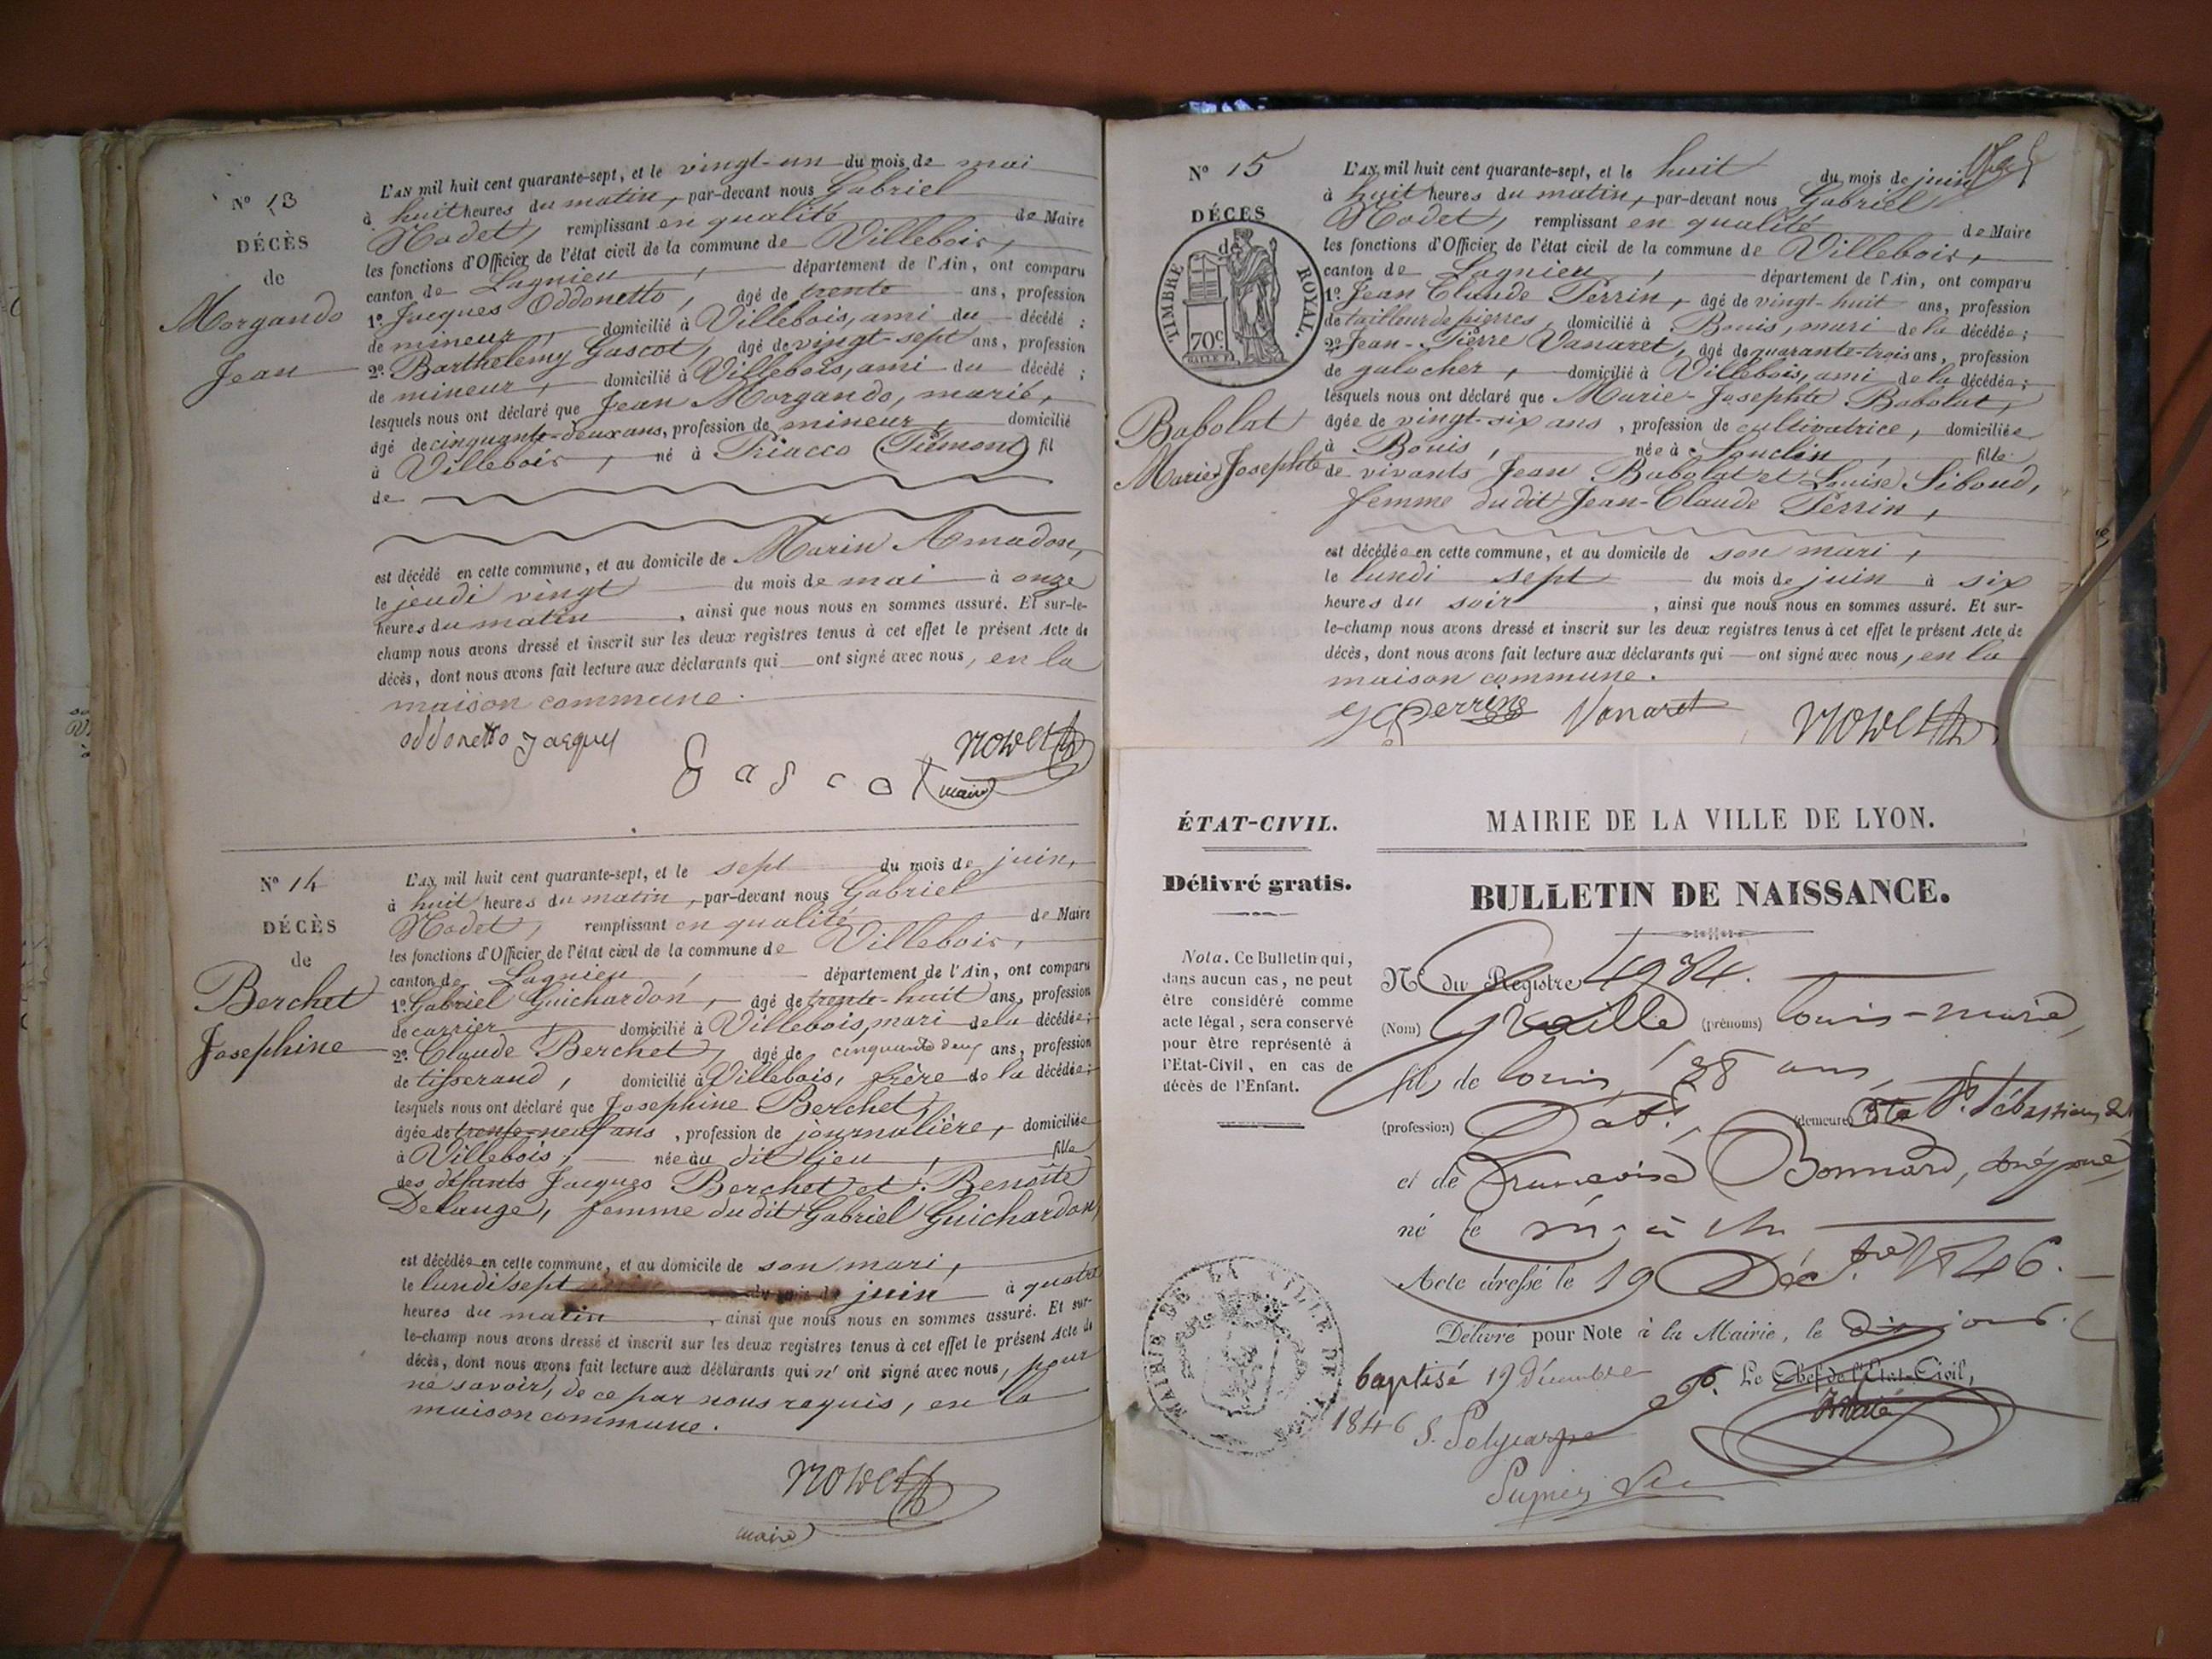 N° 13
DÉCÈS
de
Morgando
Jean
L'AN mil huit cent quarante-sept, et le vingt-un du mois de mai
à huit heures du matin, par-devant nous Gabriel
Nodet, remplissant en qualité de Maire
les fonctions d'Officier de l'état civil de la commune de Villebois,
canton de Lagnieu, département de l'Ain, ont comparu
1° Jacques Oddonetto, âgé de trente ans, profession
de mineur, domicilié à Villebois, ami du décédé;
2° Barthelemy Gascot, âgé de vingt-sept ans, profession
de mineur, domicilié à Villebois, ami du décédé;
lesquels nous ont déclaré que Jean Morgando, marié,
âgé de cinquante-deux ans, profession de mineur, domicilié
à Villebois, né à Priacco (Piémont) fil
de
est décédé en cette commune, et au domicile de Marin Amadon,
le jeudi vingt du mois de mai à onze
heures du matin, ainsi que nous nous en sommes assuré. Et sur-le-
champ nous avons dressé et inscrit sur les deux registres tenus à cet effet le présent Acte de
décès, dont nous avons fait lecture aux déclarants qui ont signé avec nous, en la
maison commune.
oddonetto jacques
Gascot
maire
N° 14
DÉCÈS
de
Berchet
Josephine
L'AN mil huit cent quarante-sept, et le sept du mois de juin,
à huit heures du matin, par-devant nous Gabriel
Nodet, remplissant en qualité de Maire
les fonctions d'Officier de l'état civil de la commune de Villebois,
canton de Lagnieu, département de l'Ain, ont comparu
1° Gabriel Guichardon, âgé de trente-huit ans, profession
de carrier, domicilié à Villebois, mari de la décédée;
2° Claude Berchet, âgé de cinquante deux ans, profession
de tisserand, domicilié à Villebois, frère de la décédée;
lesquels nous ont déclaré que Josephine Berchet,
âgée de trente-neuf ans, profession de journalière, domiciliée
à Villebois, née au dit lieu, fille
des défunts Jacques Berchet et Benoîte
Delange, femme du dit Gabriel Guichardon,
est décédée en cette commune, et au domicile de son mari,
le lundi sept du mois de juin à quatre
heures du matin, ainsi que nous nous en sommes assuré. Et sur-
le-champ nous avons dressé et inscrit sur les deux registres tenus à cet effet le présent Acte de
décès, dont nous avons fait lecture aux déclarants qui n'ont signé avec nous, pour
ne savoir, de ce par nous requis, en la
maison commune.
maire
N° 15
DÉCÈS
de
TIMBRE ROYAL.
70c
Babolat
Marie-Josephte
L'AN mil huit cent quarante-sept, et le huit du mois de juin
à huit heures du matin, par-devant nous Gabriel
Nodet, remplissant en qualité de Maire
les fonctions d'Officier de l'état civil de la commune de Villebois,
canton de Lagnieu, département de l'Ain, ont comparu
1° Jean Claude Perrin, âgé de vingt-huit ans, profession
de tailleur de pierres, domicilié à Bouis, mari de la décédée;
2° Jean-Pierre Vanaret, âgé de quarante-trois ans, profession
de galocher, domicilié à Villebois, ami de la décédée;
lesquels nous ont déclaré que Marie-Josephte Babolat,
âgée de vingt-six ans, profession de cultivatrice, domiciliée
à Bouis, née à Souclin, fille
de vivants Jean Babolat et Louise Siboud,
femme du dit Jean-Claude Perrin,
est décédée en cette commune, et au domicile de son mari,
le lundi sept du mois de juin à six
heures du soir, ainsi que nous nous en sommes assuré. Et sur-
le-champ nous avons dressé et inscrit sur les deux registres tenus à cet effet le présent Acte de
décès, dont nous avons fait lecture aux déclarants qui ont signé avec nous, en la
maison commune.
Perrin Vanaret
ÉTAT-CIVIL.
Délivré gratis.
Nota. Ce Bulletin qui,
dans aucun cas, ne peut
être considéré comme
acte légal, sera conservé
pour être représenté à
l'Etat-Civil, en cas de
décès de l'Enfant.
MAIRIE DE LA VILLE DE LYON.
BULLETIN DE NAISSANCE.
N° du Registre 4984.
(Nom) (prénoms) Louis-marie,
fils de Louis, 28 ans,
(profession) (demeure) St. Sébastien
et de Françoise Bonnard,
né le
Acte dressé le 19 Déc.bre 1846.
Délivré pour Note à la Mairie, le dit jour.
Le Chef de l'Etat-Civil,
MAIRIE DE LA VILLE DE LYON
baptisé 19 décembre
1846 S. Polycarpe